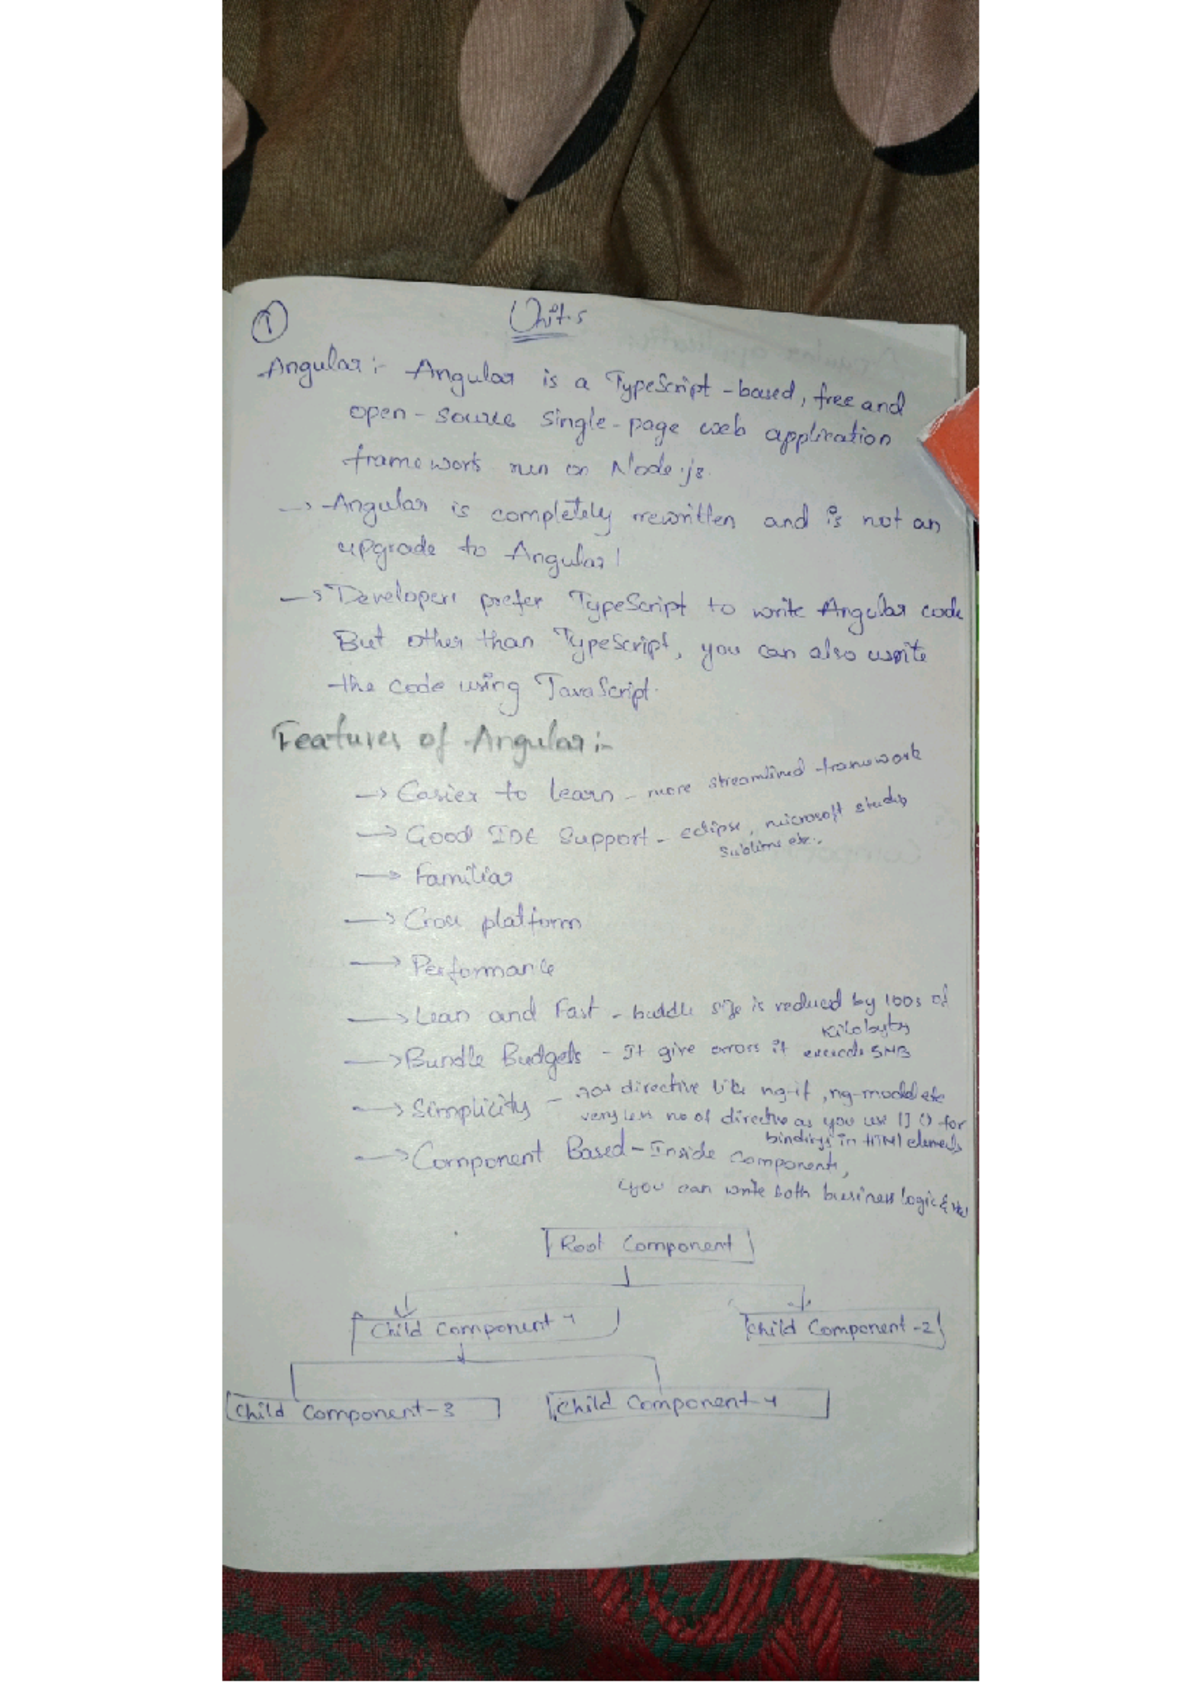 1
Unit-5
Angular:- Angular is a TypeScript-based, free and
open-source single-page web application
framework run on Node.js.
→ Angular is completely rewritten and is not an
upgrade to Angular 1
→ Developers prefer TypeScript to write Angular code
But other than TypeScript, you can also write
the code using JavaScript.
Features of Angular:-
→ Easier to learn - more streamlined framework
→ Good IDE Support - eclipse, microsoft studio,
sublime etc.
→ Familiar
→ Cross platform
→ Performance
→ Lean and Fast - size is reduced by 100s of
Kilobytes
→ Bundle Budgets - It give errors if exceeds 5MB
→ Simplicity - directive like ng-if, ng-model etc
very less no of directive as you use [] () for
bindings in HTML elements
→ Component Based - Inside Components,
you can write both business logic &
Root Component
Child Component-1
Child Component-2
Child Component-3
Child Component-4